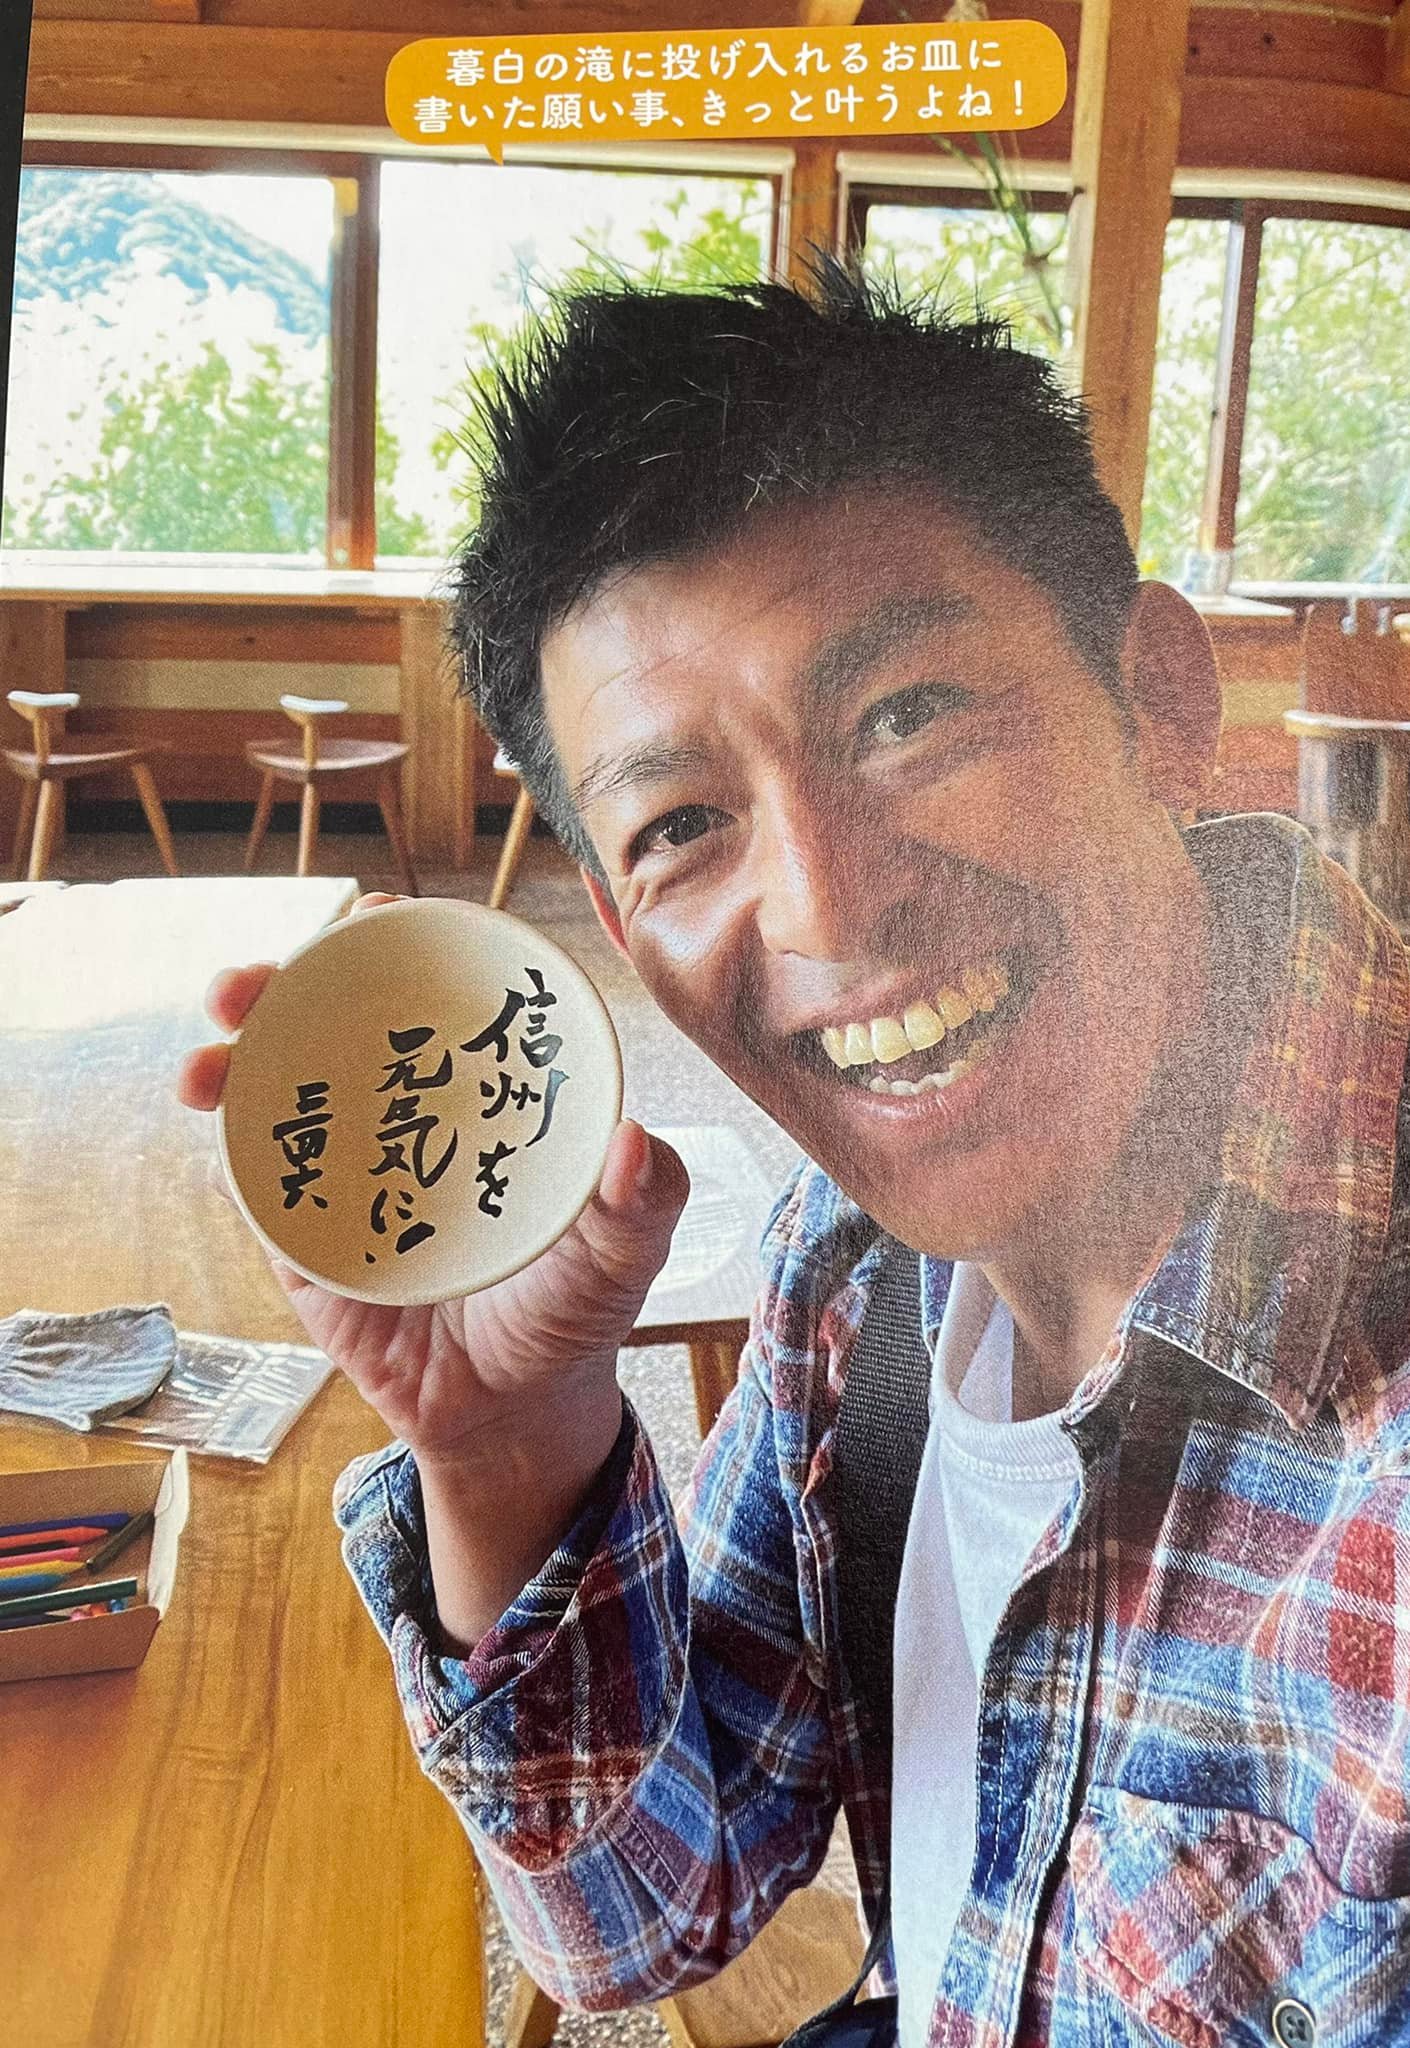 暮白の滝に投げ入れるお皿に
書いた願い事、きっと叶うよね！
信州を
元気に!!
三四六